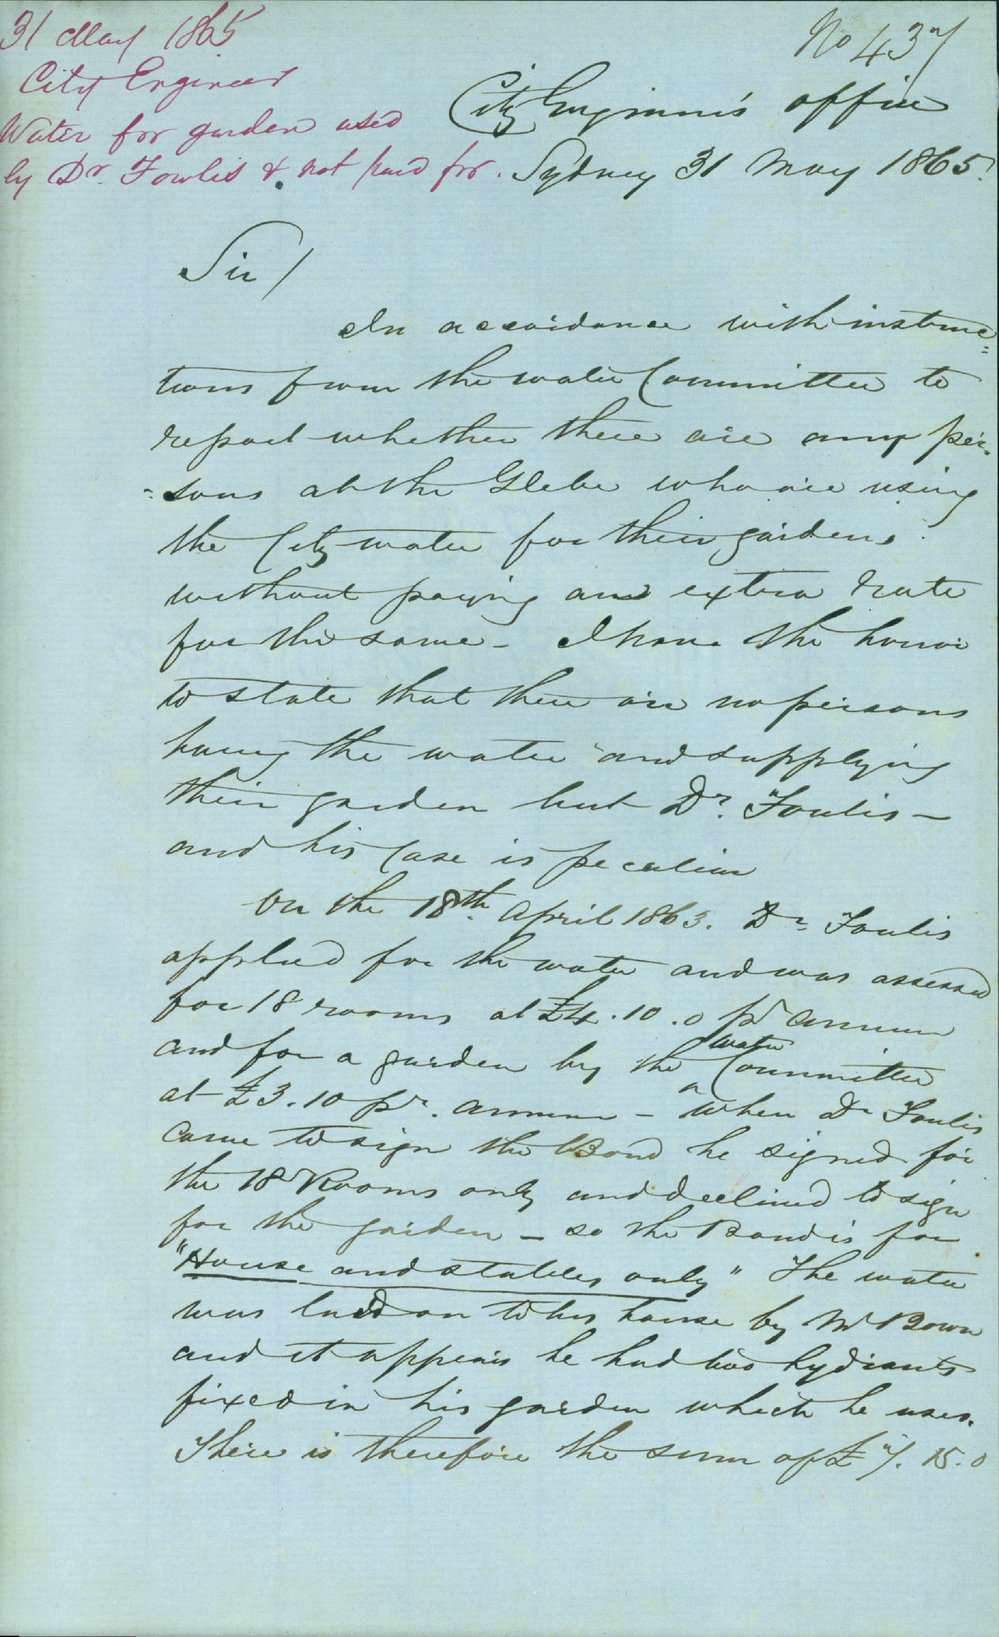 31 May 1865
City Engineer
Water for garden used
by Dr. Fowlis & not paid for.
No 437
City Engineer's office
Sydney 31 May 1865.
Sir/
In accordance with instruc=
tions from the water Committee to
report whether there are any per-
=sons at the Glebe who are using
the City water for their gardens
without paying an extra rate
for the same - I have the honor
to state that there are no persons
having the water and supplying
their garden but Dr. Foulis -
and his Case is peculiar
On the 18th April 1863. Dr Foulis
applied for the water and was assessed
for 18 rooms at £4.10.0 pr annum
and for a garden by the water Committee
at £3.10 pr. annum - when Dr Foulis
came to sign the Bond he signed for
the 18 Rooms only and declined to sign
for the garden - so the Bond is for
"House and stables only" The water
was laid on to his house by Mr Bown
and it appears he had two hydrants
fixed in his garden which he uses.
There is therefore the sum of £7.15.0